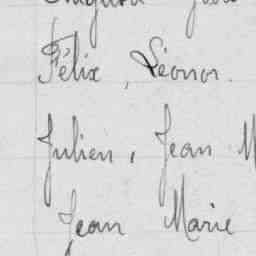 Félix, Léonor.
Julien, Jean M
Jean Marie